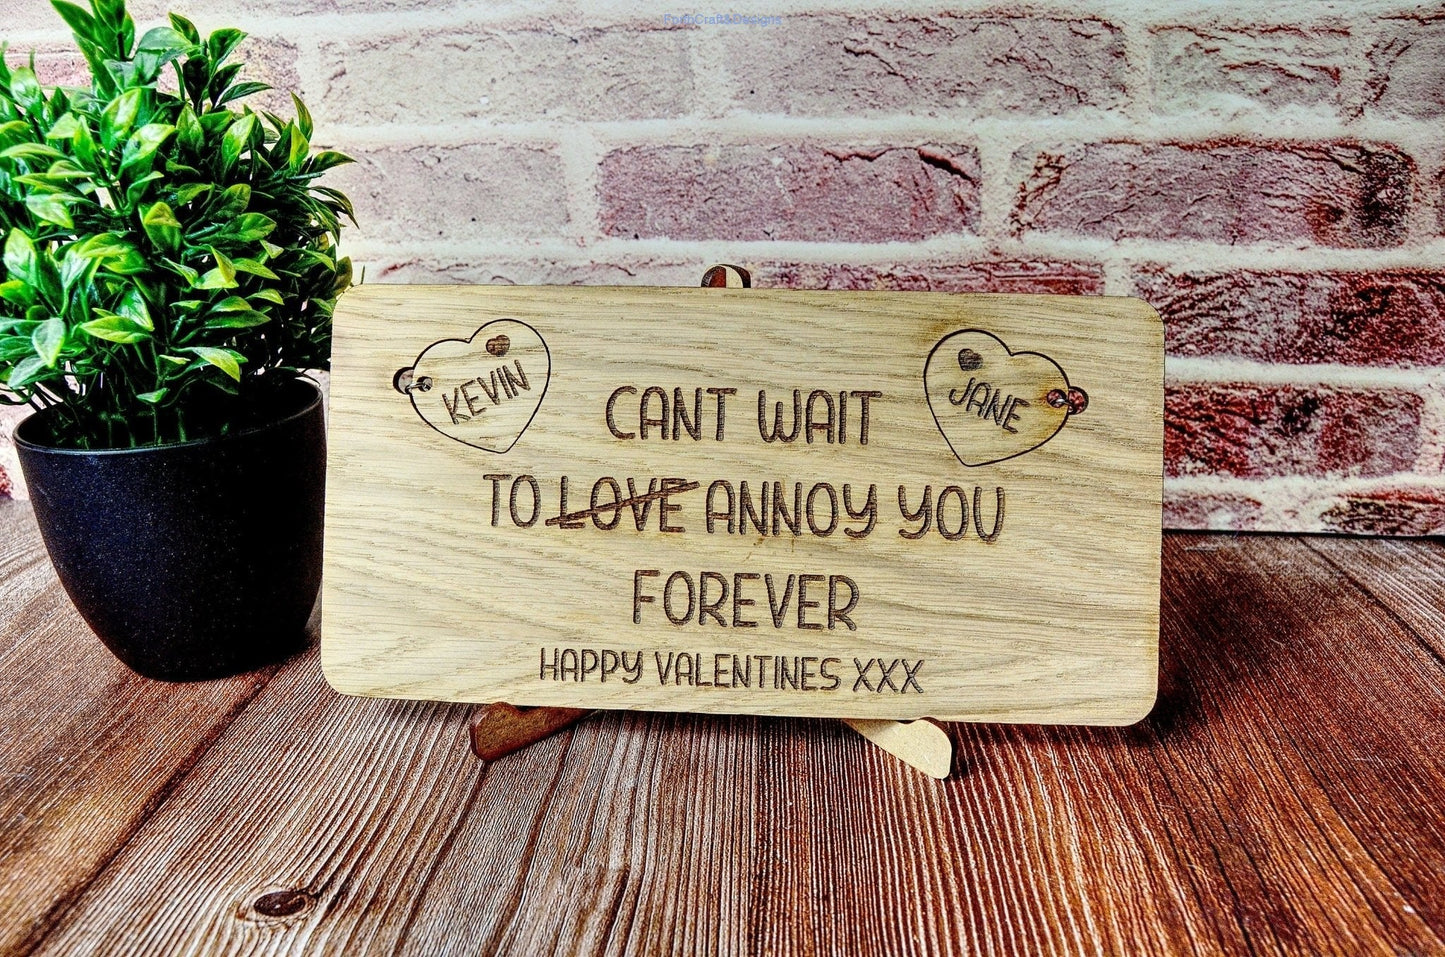 KEVIN
JANE
CANT WAIT
TO LOVE ANNOY YOU
FOREVER
HAPPY VALENTINES XXX